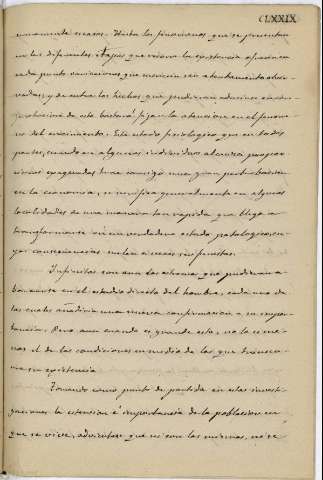 CLXXIX
sumamente escasos. Hasta los fenómenos que se presentan
en las diferentes etapas que recorre la existencia ofrecen en
cada punto variaciones que merecen ser atentamente obser-
vadas; y de entre los hechos que pudieran aducirse en com-
probacion de esto bastará fijar la atencion en el fenome-
no del crecimiento. Este estado fisiologico que en todas
partes, cuando en algunos individuos alcanza propor-
ciones exageradas trae consigo una gran perturbacion
en la economia, se verifica generalmente en algunas
localidades de una manera tan rapida que llega a
transformarse en un verdadero estado patologico, cu-
yas consecuencias suelen a veces ser funestas.
Infinitos son aun los extremos que pudieran a-
bonarse en el estudio directo del hombre, cada uno de
los cuales añadiria una nueva confirmacion a su impor-
tancia. Pero aun cuando es grande esta, no lo es me-
nos el de las condiciones en medio de las que trascur-
re su existencia.
Tomando como punto de partida en estas investi-
gaciones la extension é importancia de la poblacion en
que se vive, adviertese que ni son las mismas, ni se